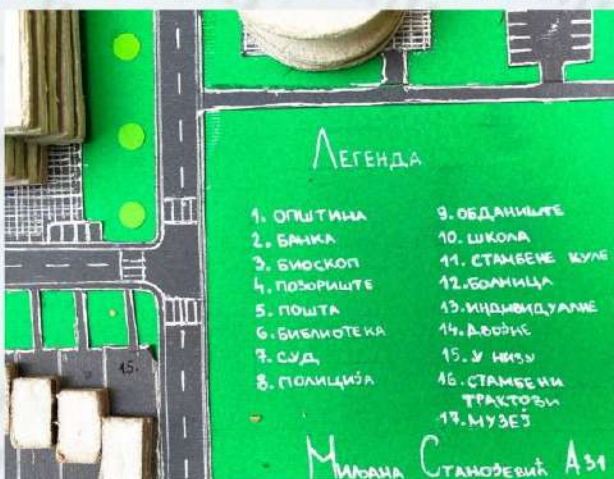 ЛЕГЕНДА
1. ОПШТИНА
2. БАНКА
3. БИОСКОП
4. ПОЗОРИШТЕ
5. ПОШТА
6. БИБЛИОТЕКА
7. СУД
8. ПОЛИЦИЈА
9. ОБДАНИШТЕ
10. ШКОЛА
11. СТАМБЕНЕ КУЛЕ
12. БОЛНИЦА
13. ИНДИВИДУАЛНЕ
14. ДВОЈНЕ
15. У НИЗУ
16. СТАМБЕНИ
ТРАКТОВИ
17. МУЗЕЈ
15.
МИЉАНА СТАНОЈЕВИЋ А31